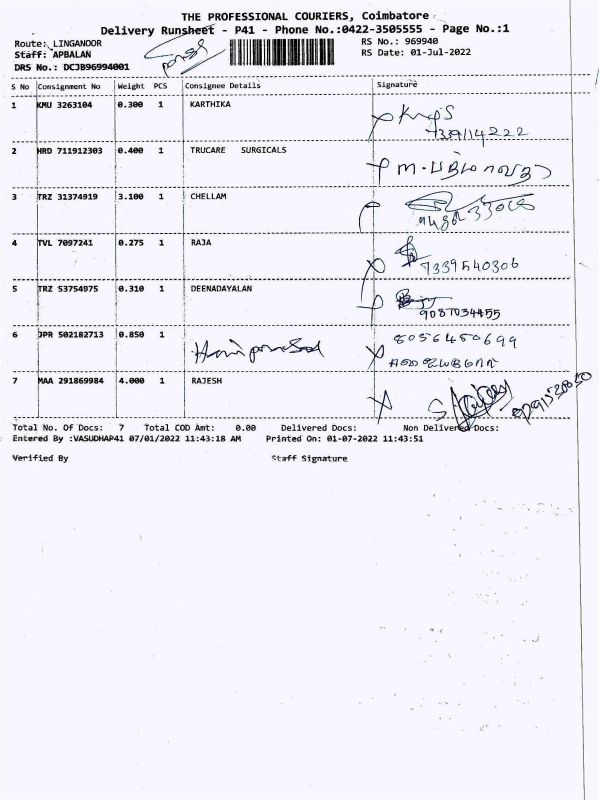 THE PROFESSIONAL COURIERS, Coimbatore
Delivery Runsheet - P41 - Phone No.:0422-3505555 - Page No.:1
Route: LINGANOOR
RS No.: 969940
Staff: APBALAN
RS Date: 01-Jul-2022
DRS No.: DCJB96994001
S No Consignment No Weight PCS Consignee Details Signature
1 KMU 3263104 0.300 1 KARTHIKA
2 HRD 711912303 0.400 1 TRUCARE SURGICALS
3 TRZ 31374919 3.100 1 CHELLAM
4 TVL 7097241 0.275 1 RAJA
7339540306
5 TRZ 53754975 0.310 1 DEENADAYALAN
9087034455
6 JPR 502182713 0.850 1 Hariprasad
8056450699
7 MAA 291869984 4.000 1 RAJESH
Total No. Of Docs: 7 Total COD Amt: 0.00 Delivered Docs: Non Delivered Docs:
Entered By :VASUDHAP41 07/01/2022 11:43:18 AM Printed On: 01-07-2022 11:43:51
Verified By Staff Signature